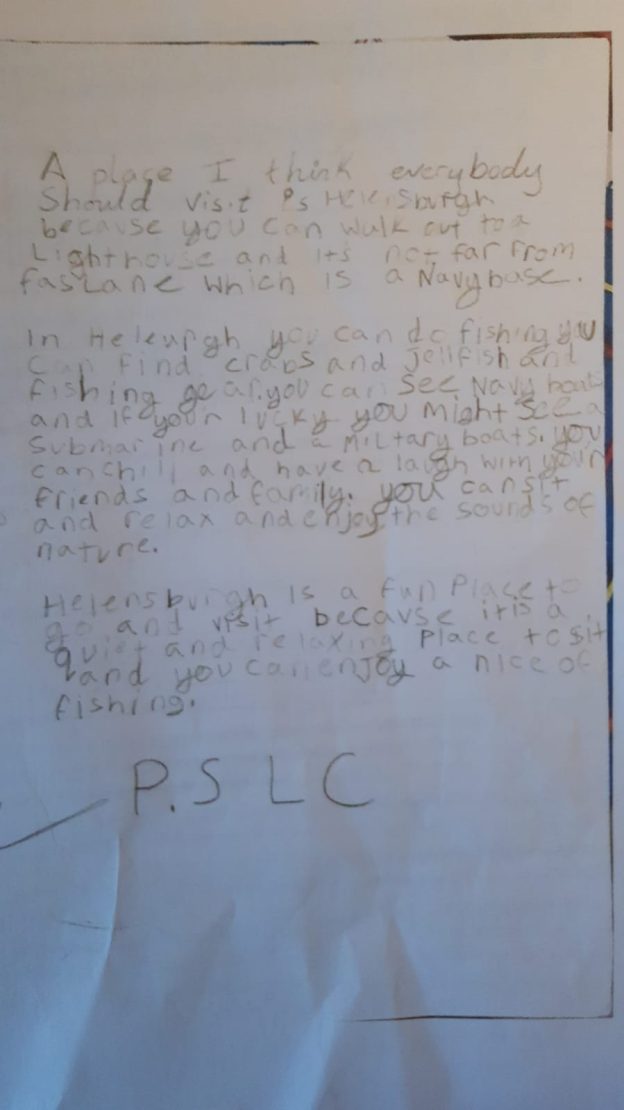 A place I think everybody
Should visit is Helensburgh
because you can walk out to a
Lighthouse and it's not far from
faslane which is a Navy base.
In Heleurgh you can do fishing you
can find crabs and jellfish and
fishing gear. you can see Navy boats
and if your lucky you might see a
submarine and a Miltary boats. you
can chill and have a laugh with your
friends and family. you can sit
and relax and enjoy the sounds of
nature.
Helensburgh is a fun Place to
go and visit because it is a
quiet and relaxing place to sit
and you can enjoy a nice of
fishing.
P.S L C